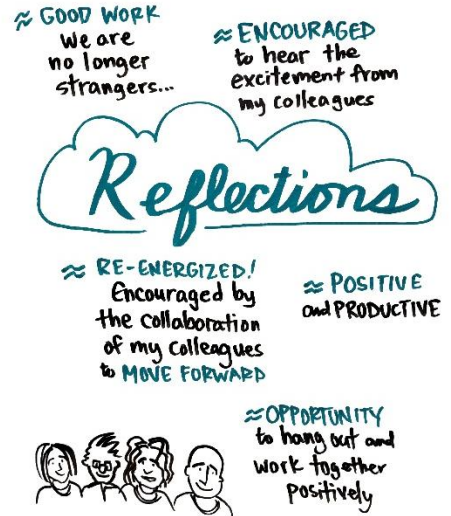 ≈ GOOD WORK
we are
no longer
strangers...
≈ ENCOURAGED
to hear the
excitement from
my colleagues
Reflections
≈ RE-ENERGIZED!
Encouraged by
the collaboration
of my colleagues
to MOVE FORWARD
≈ POSITIVE
and PRODUCTIVE
≈ OPPORTUNITY
to hang out and
work together
positively